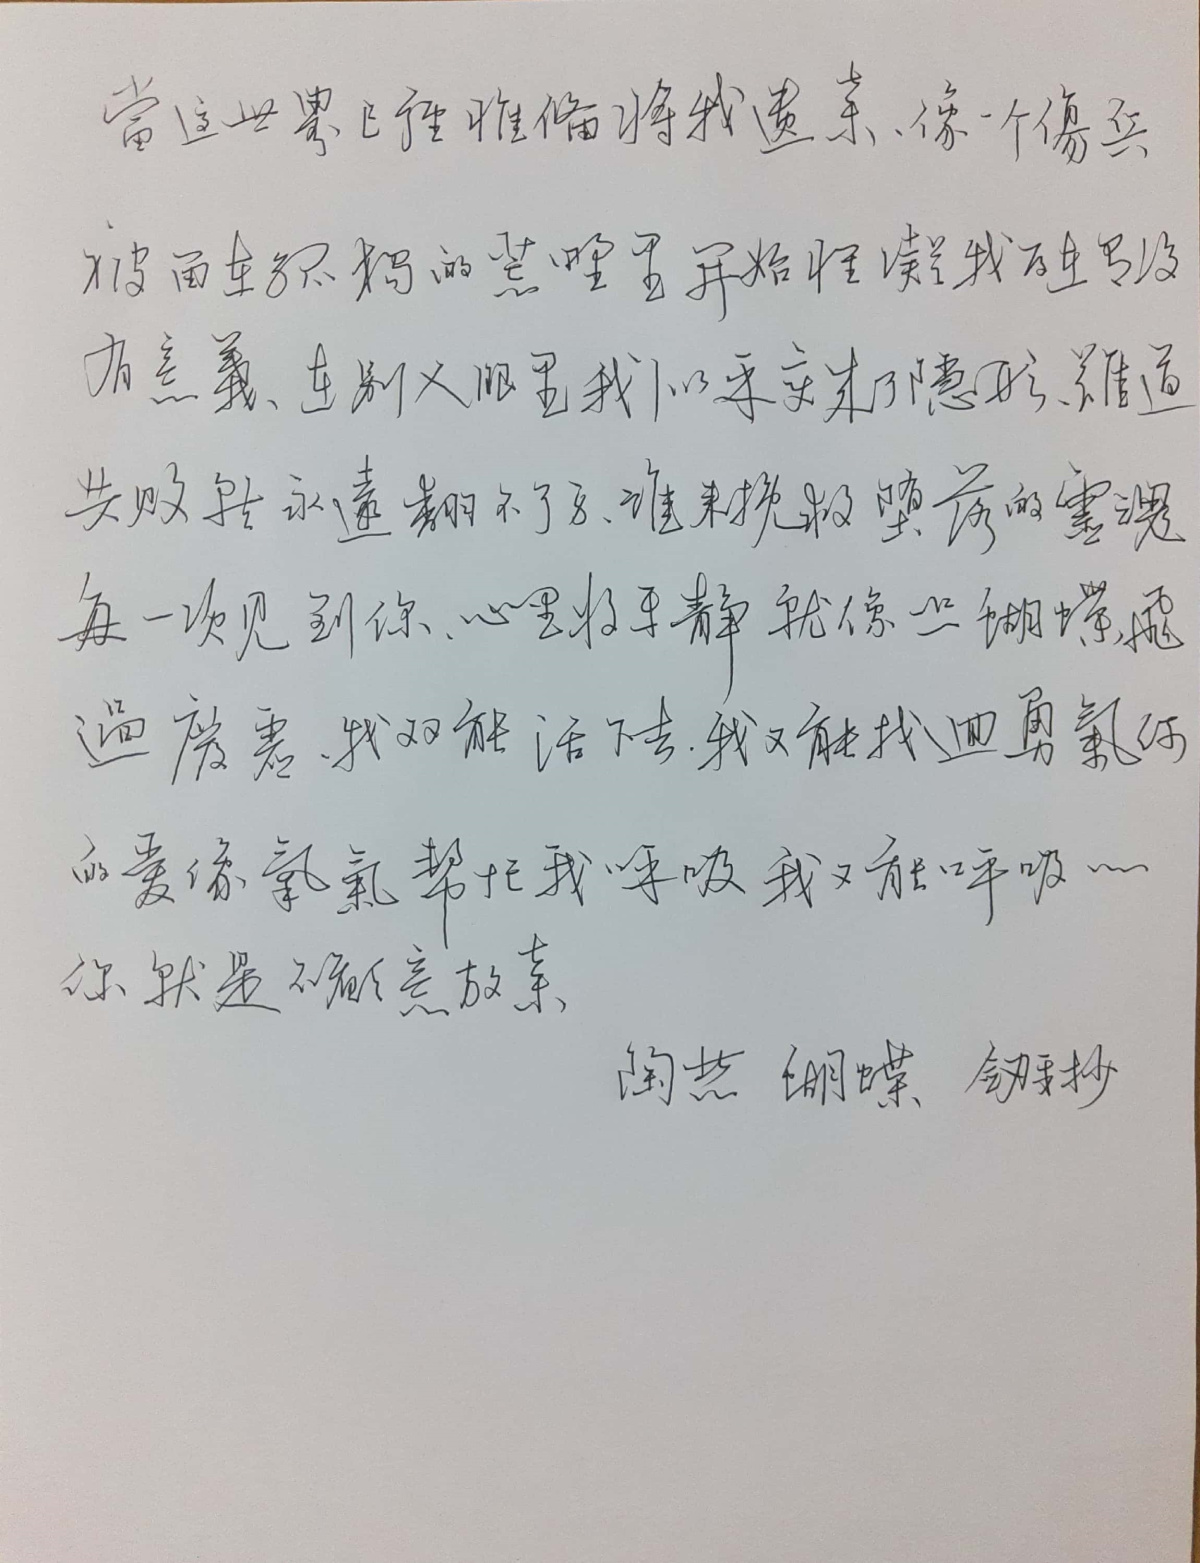 當這世界已經准備将我遺棄、像一个傷兵
被留在孤獨的荒野里開始怀疑我存在是否没
有意義、在别人眼里我似乎变成了隱形、難道
失败就永遠翻不了身、谁来挽救墮落的靈魂
每一次见到你、心里好平静就像一只蝴蝶飛
過廢墟、我又能活下去、我又能找迴勇氣你
的爱像氧氣幫忙我呼吸我又能呼吸
你就是不願意放棄
陶喆 蝴蝶 手抄